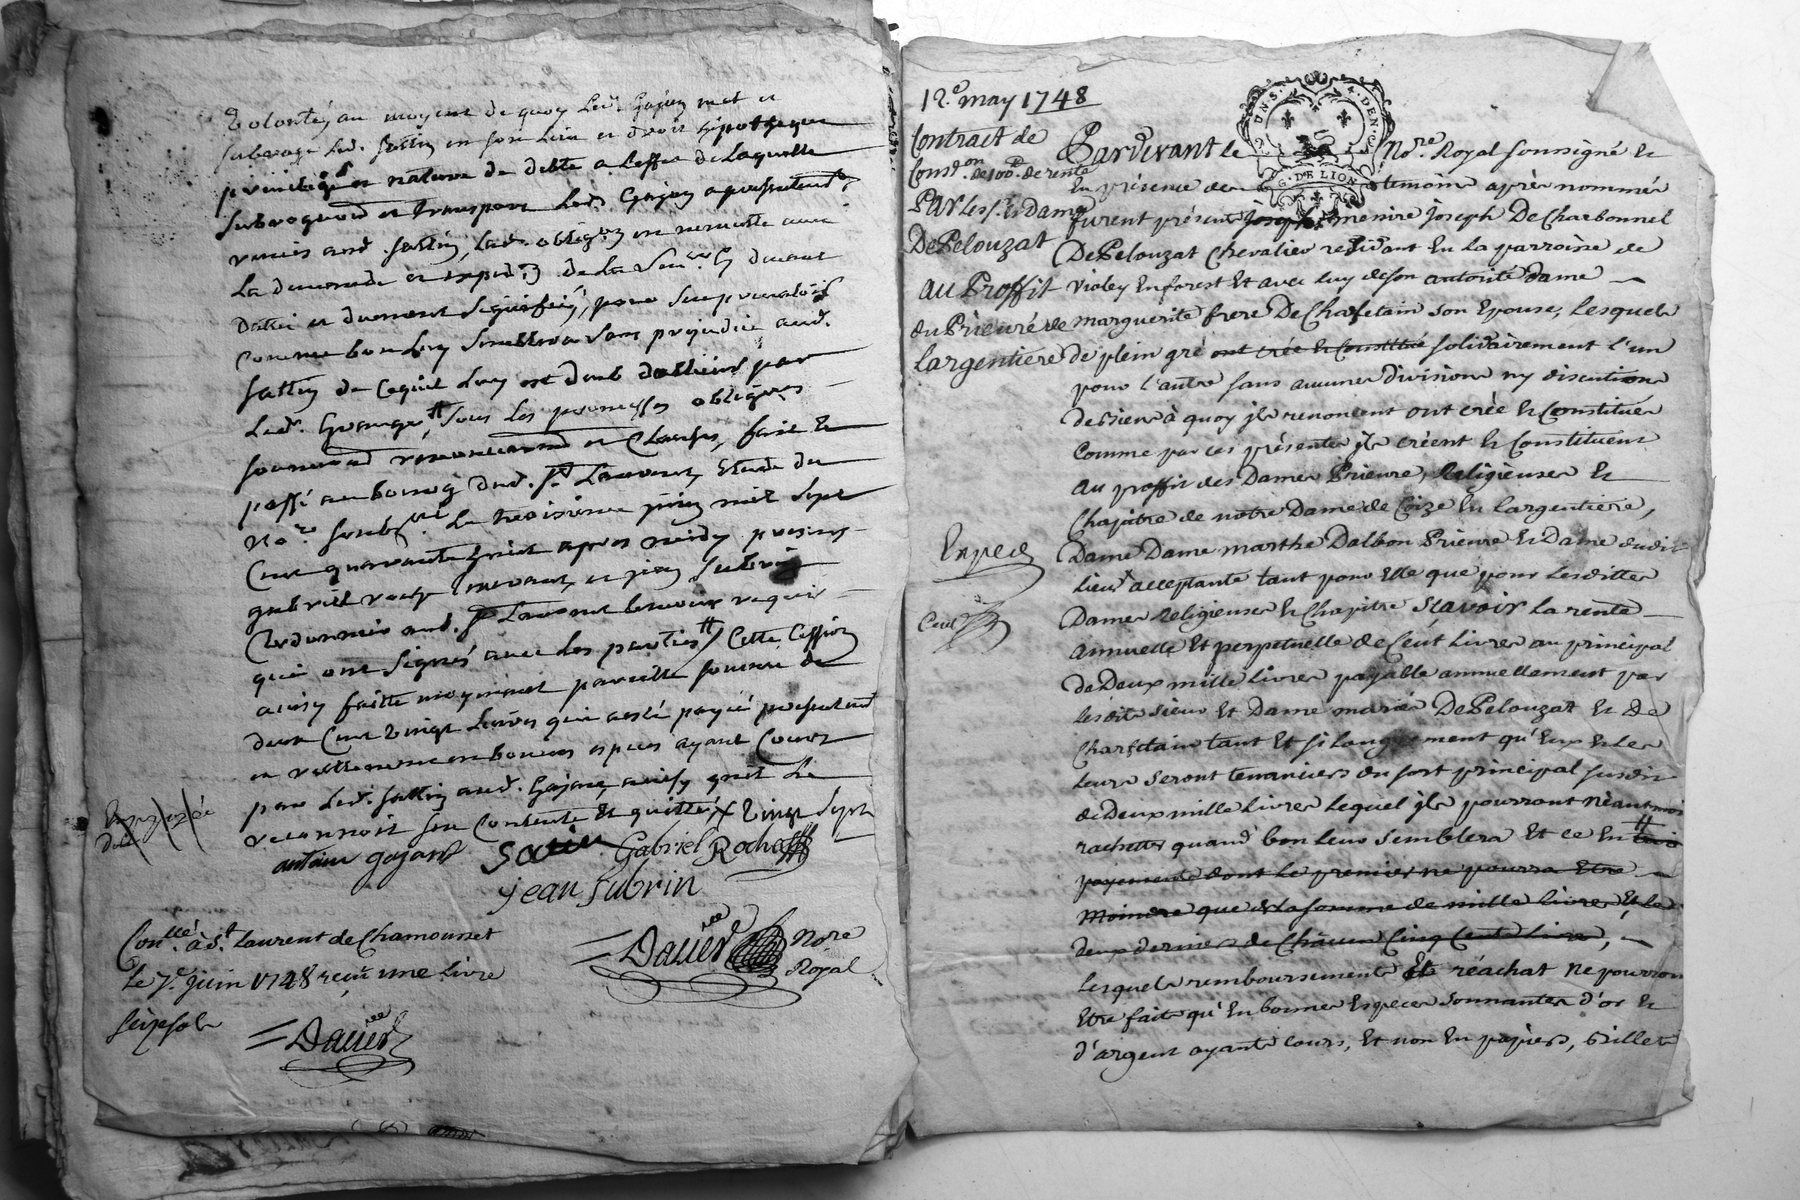 Volonté, au moyent de quoy led. Gajan met et
subroge led. Sattin en son lieu et droit hipotheque
privilege et nature de debte a l'effet de laquelle
subrogation et transport led. Gajan a presentement
remis aud. Sattin, lad. obligon
la demande
comme bon luy semblera sans prejudice aud.
Sattin de ce qui luy est deub d'ailleurs par
led. sous les promesses obligons
soumissions renonciations et clauses, fait et
passé au bourg dud. St. Laurent, Etude du
Nore. soussigné le troisieme juin mil sept
Cent quarante huit apres midy presens
gabriel roche et jean subrin
Cordonnier aud. St Laurent temoins requis
qui ont signés avec les parties # Cette Cession
ainsy faitte moyenant pareille somme de
deux Cent vingt livres qui a esté payée presentement
et reellement en bonnes espèces ayant Cours
par led. Sattin aud. Gajan ainsy qu'il le
reconnoit s'en contente et quitte # vingt sept
antoine gajant Gabriel Roche
Jean Subrin
Conllé. à St. Laurent de Chamousset
Le 7e. juin 1748 reçu une livre
seize sols
= Daviers Nore
Royal
= Daviers
12.e may 1748
G. DE LION
Contract de
Conston. de 100lt. de rente
Par les s. et Dame
De Pelouzat
au Proffit
du Prieuré de
Largentiere
Expedé
Pardevant le Nore. Royal soussigné et
En présence des temoins après nommés
furent présents Joseph messire joseph De Charbonnel
De Pelouzat Chevalier residant En la parroisse de
violey En forest Et avec luy de son autorité Dame
marguerite frere De Chaſetain son Epouse, Lesquels
de plein gré ont crée et Constitué solidairement l'un
pour l'autre sans aucune division ny discution
de biens à quoy ils renoncent ont crée et Constituer
Comme par ces présentes ils créent et Constituent
au proffit des Dames Prieure, Religieuses et
Chapitre de notre Dame de Coize En Largentiere,
Dame Dame marthe Dalbon Prieure et Dame dudit
lieu acceptante tant pour Elle que pour lesdittes
Dames Religieuses et Chapitre Sçavoir la rente
annuelle Et perpetuelle de Cent Livres au principal
de Deux mille Livres payable annuellement par
lesdits sieur Et Dame mariés De Pelouzat et De
Charſetain tant Et si longuement qu'Eux et les
leurs seront tenanciers du sort principal susdit
de Deux mille Livres lequel ils pourront néantmoins
rachetter quand bon leur semblera Et ce En # trois
payements dont le premier ne pourra Etre
moindre que de la somme de mille livres, Et les
deux derniers de Châcun Cinq Cents Livres,
lesquels remboursements Et réachat ne pourront
Etre faits qu'En bonnes Especes sonnantes d'or et
d'argent ayants cours, Et non En papiers, billets